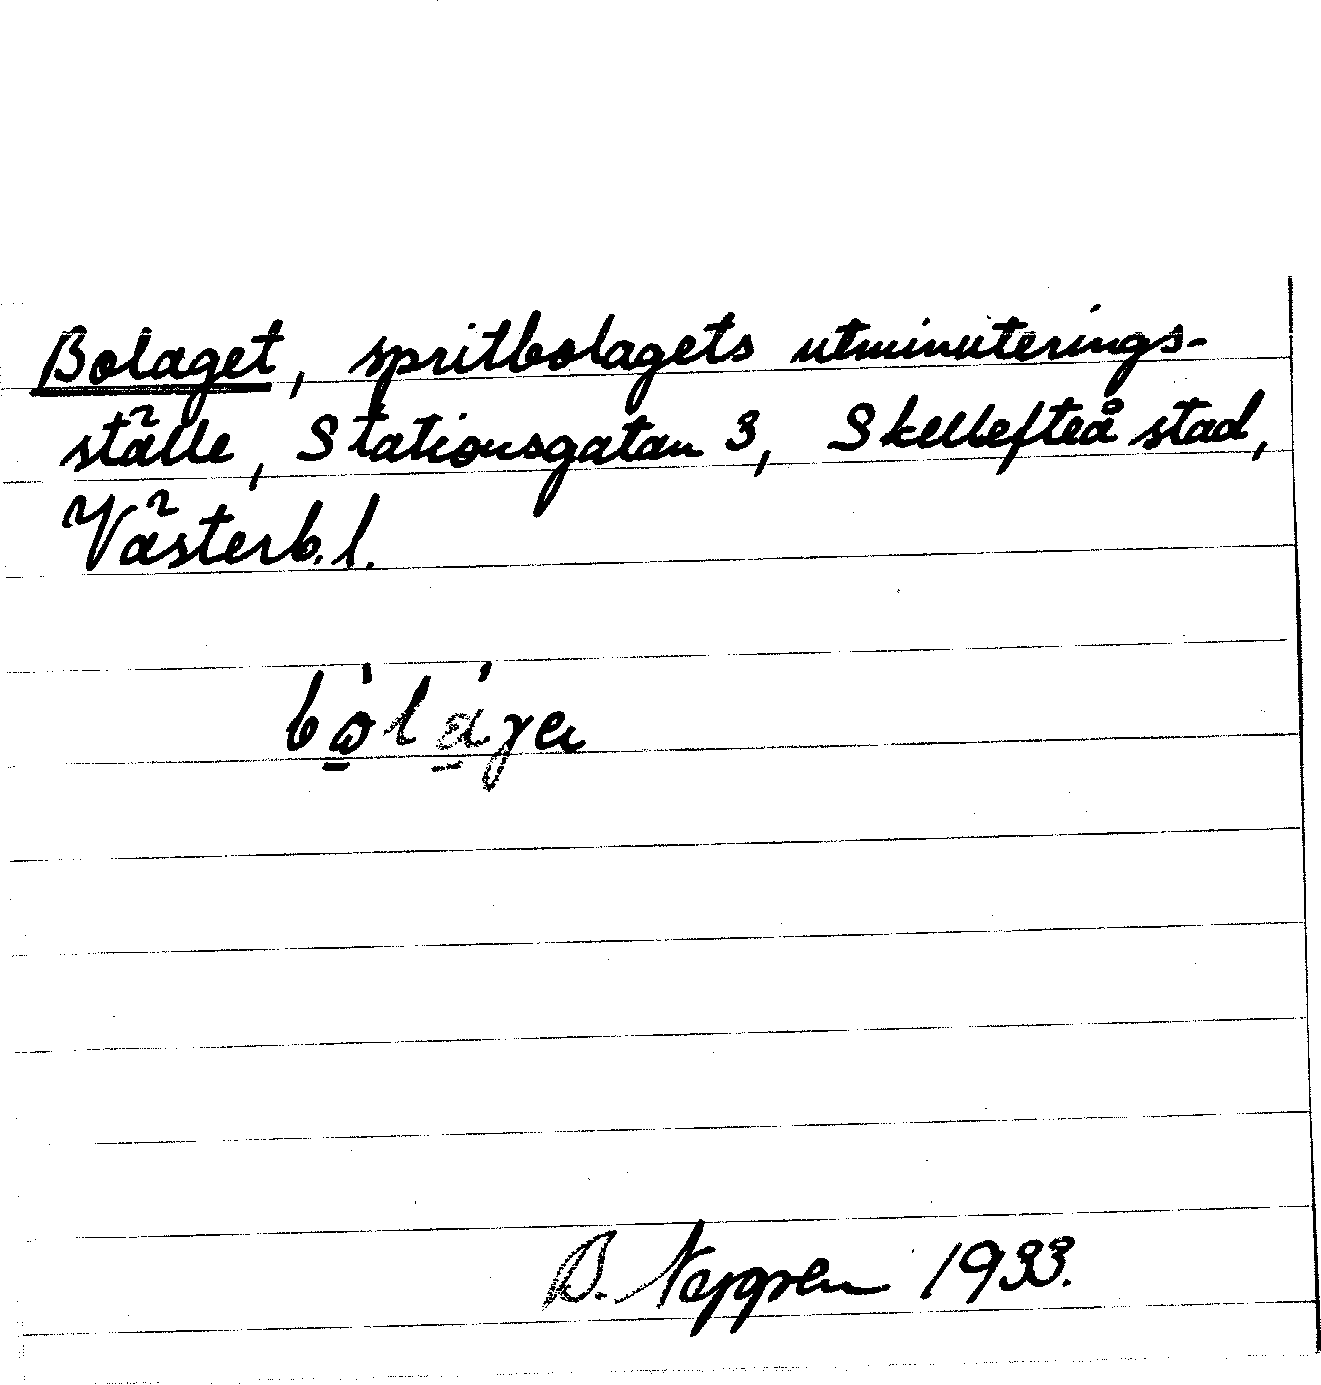 Bolaget, spritbolagets utminuterings-
ställe, Stationsgatan 3, Skellefteå stad,
Västerb. l.
B. 1933.